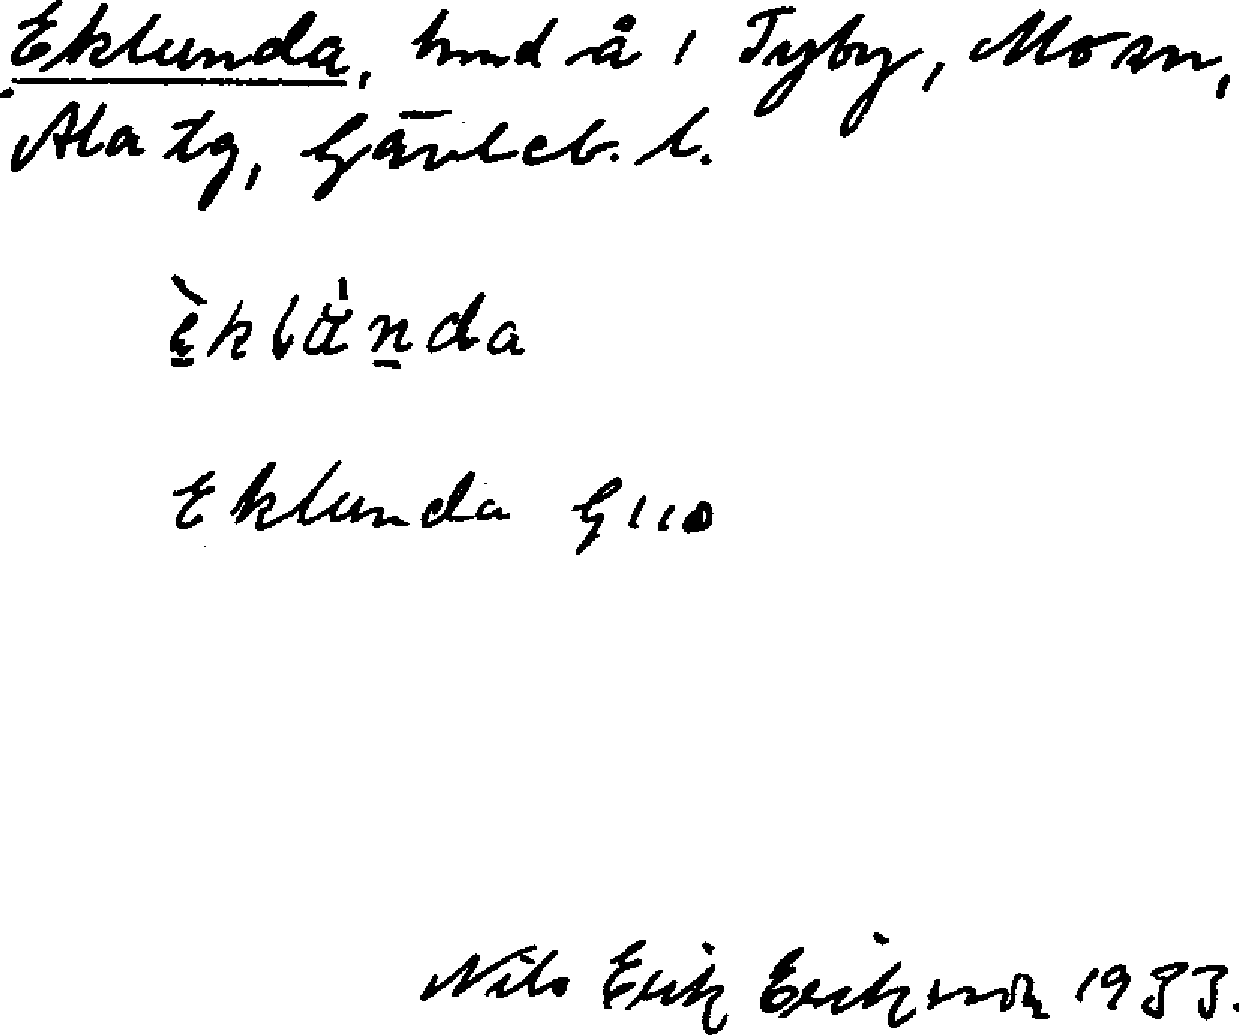 Eklunda, hmd å i Tyby, Mo sn,
Ala tg, Gävleb. l.
Eklunda G 110
Nils Erik Erikson 1933.